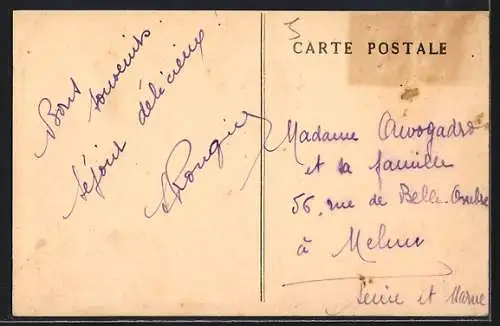 Bons souvenirs
séjour délicieux!
Rougier
CARTE POSTALE
Madame Avogadro
et sa famille
56, rue de Belle-Ombre
à Melun
Seine et Marne